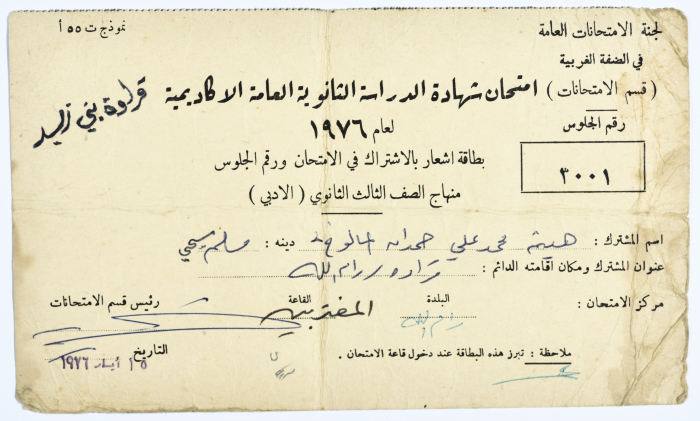 لجنة الامتحانات العامة
في الضفة الغربية
( قسم الامتحانات )
نموذج ت ٥٥ أ
امتحان شهادة الدراسة الثانوية العامة الاكاديمية
لعام ١٩٧٦
قراوة بني زيد
رقم الجلوس
٣٠٠١
بطاقة اشعار بالاشتراك في الامتحان ورقم الجلوس
منهاج الصف الثالث الثانوي ( الادبي )
اسم المشترك : محمد علي حمدان دينه :
عنوان المشترك ومكان اقامته الدائم : رام الله
مركز الامتحان : البلدة رام الله القاعة المغتربين
رئيس قسم الامتحانات
التاريخ
١٩٧٦
ملاحظة : تبرز هذه البطاقة عند دخول قاعة الامتحان .